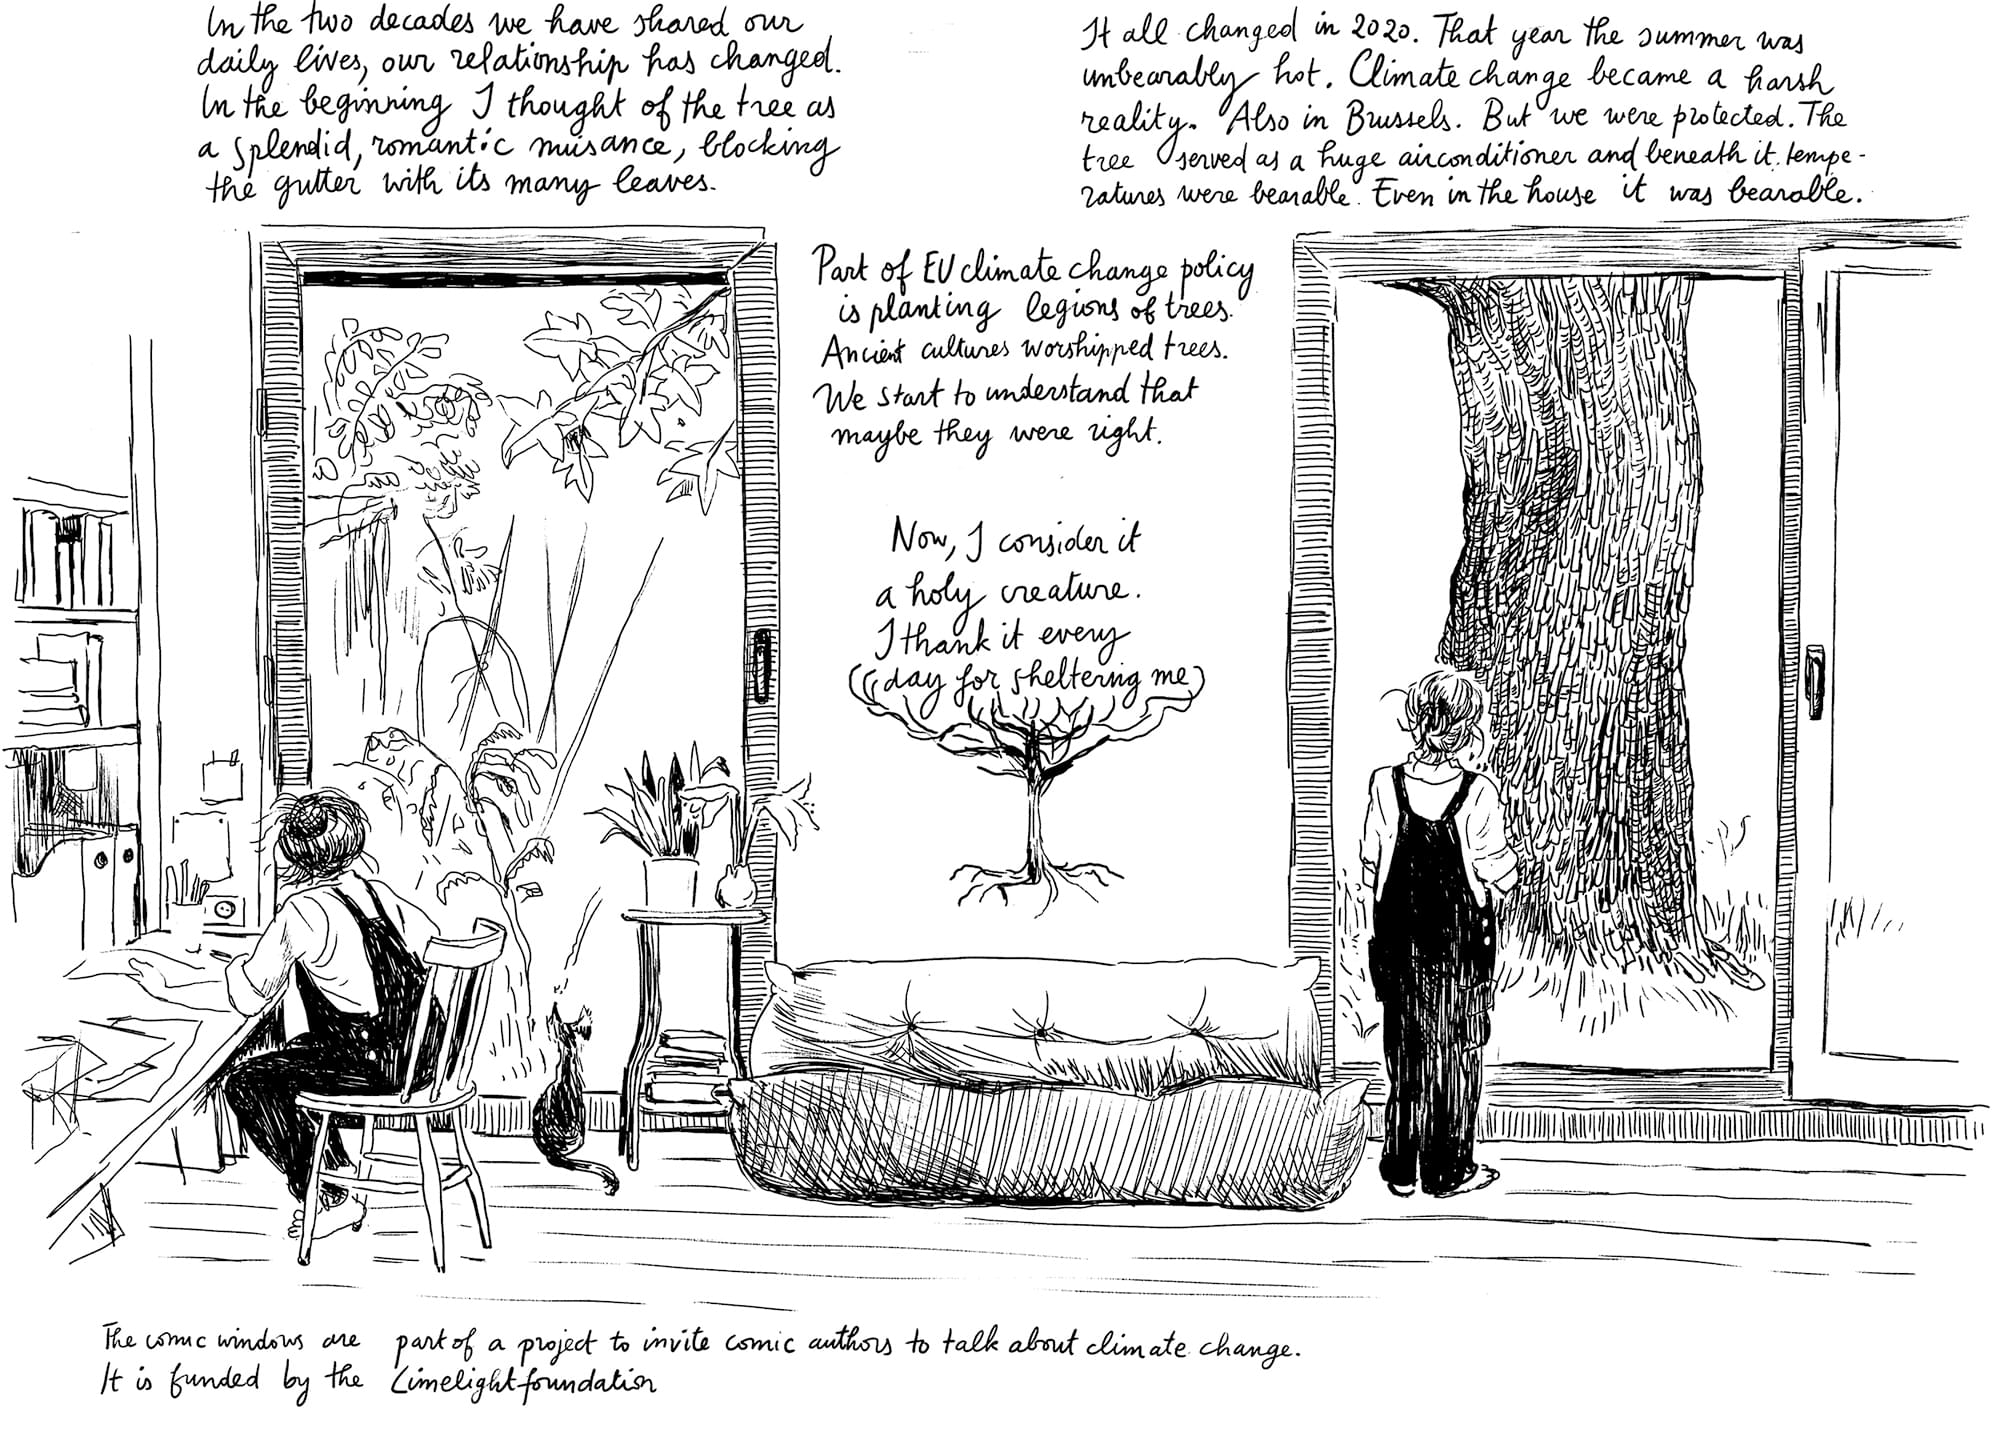 In the two decades we have shared our
daily lives, our relationship has changed.
In the beginning I thought of the tree as
a splendid, romantic nuisance, blocking
the gutter with its many leaves.
It all changed in 2020. That year the summer was
unbearably hot. Climate change became a harsh
reality. Also in Brussels. But we were protected. The
tree served as a huge airconditioner and beneath it tempe-
ratures were bearable. Even in the house it was bearable.
Part of EU climate change policy
is planting legions of trees.
Ancient cultures worshipped trees.
We start to understand that
maybe they were right.
Now, I consider it
a holy creature.
I thank it every
day for sheltering me
The comic windows are part of a project to invite comic authors to talk about climate change.
It is funded by the Limelight foundation